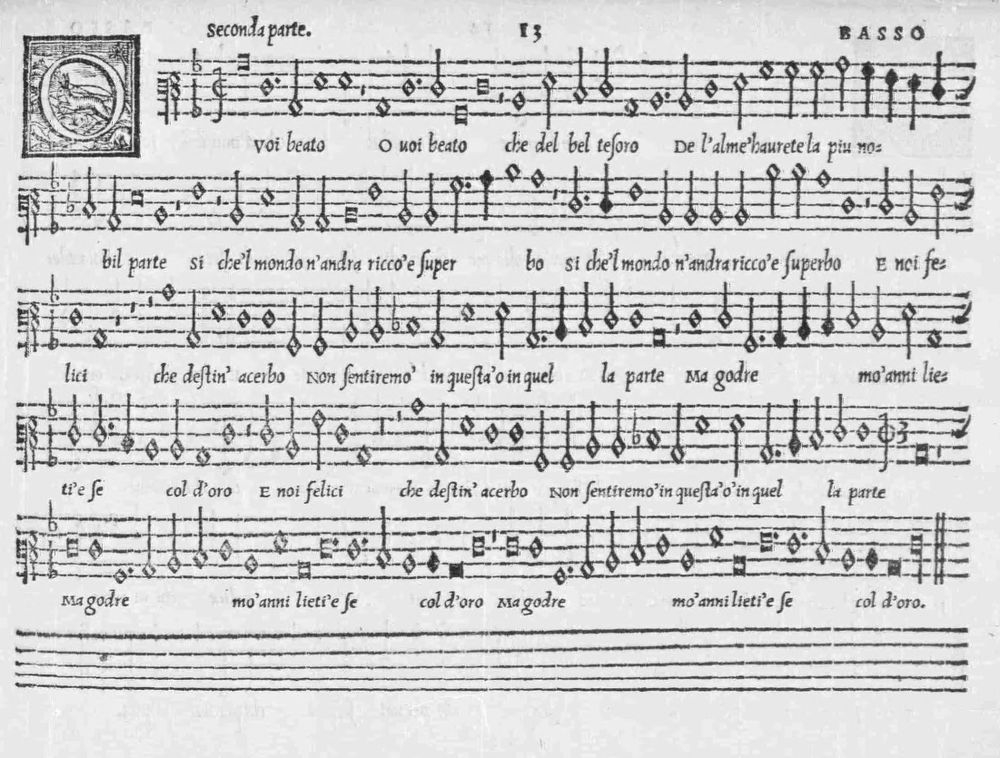 Seconda parte. 13 BASSO
O Voi beato O uoi beato che del bel tesoro De l'alme'haurete la piu no=
bil parte si che'l mondo n'andra ricco'e super bo si che'l mondo n'andra ricco'e superbo E noi fe=
lici che destin' acerbo Non sentiremo' in questa'o in quel la parte Ma godre mo'anni lie=
ti'e se col d'oro E noi felici che destin' acerbo Non sentiremo'in questa'o'in quel la parte
Ma godre mo'anni lieti'e se col d'oro Ma godre mo'anni lieti'e se col d'oro.